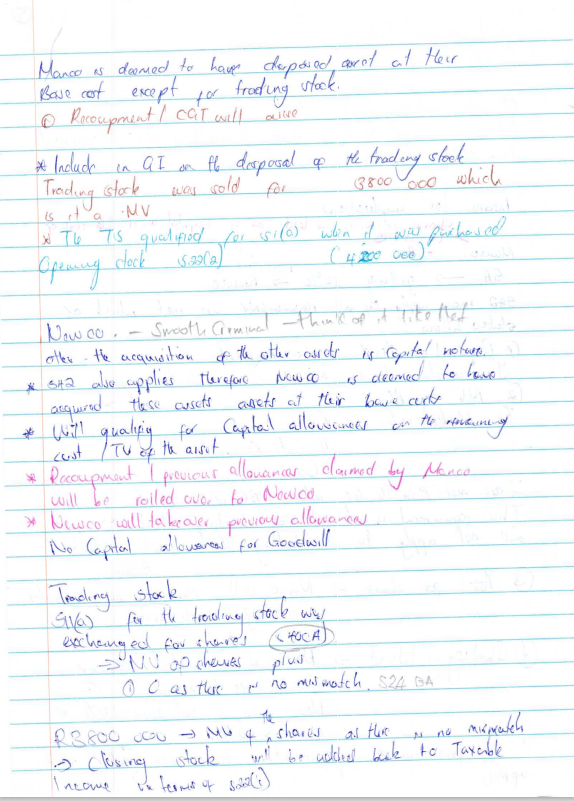 Manco is deemed to have disposed asset at their
Base cost except for trading stock.
① Recoupment / CGT will arise
* Include in GI on the disposal of the trading stock
Trading stock was sold for 3800 000 which
is it a MV
* The TS qualified for s11(a) when it was purchased
Opening stock s22(2) (4 200 000)
Newco. – Smooth Criminal – think of it like that
other - the acquisition of the other assets is Capital nature.
* S42 also applies therefore Newco is deemed to have
acquired these assets assets at their base costs
* Will qualify for Capital allowances on the remaining
cost / TV of the asset.
* Recoupment / previous allowances claimed by Manco
will be rolled over to Newco
* Newco will takeover previous allowances.
No Capital allowances for Goodwill
Trading stock
S11(a) for the trading stock was
exchanged for shares (40CA)
→ MV of shares plus
① 0 as there is no mismatch. S24 BA
R3800 000 → MV of the shares as there is no mismatch
→ Closing stock will be added back to Taxable
Income in terms of s22(1)